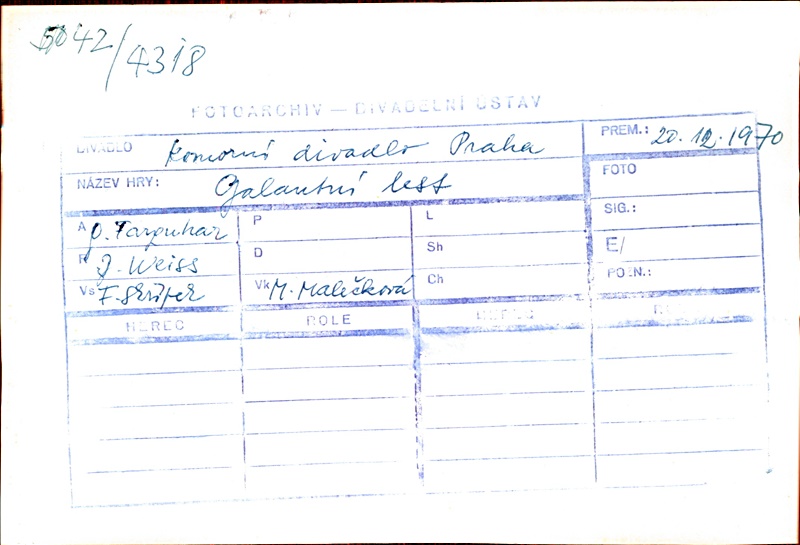 5042/4318
FOTOARCHIV — DIVADELNÍ ÚSTAV
DIVADLO Komorní divadlo Praha PREM.: 20.12.1970
NÁZEV HRY: Galantní lest FOTO
SIG.:
E/
POZN.:
A Farquhar P L
R J. Weiss D Sh
Vs F. Skřípek Vk M. Malečková Ch
HEREC ROLE HEREC ROLE